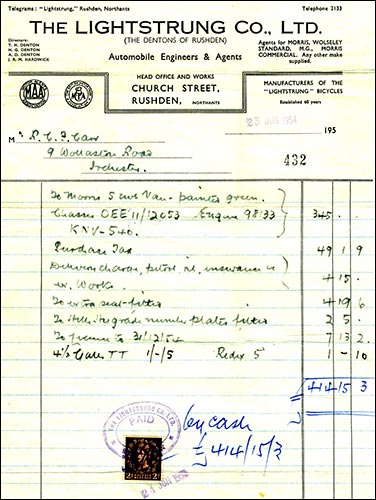 Telegrams: "Lightstrung," Rushden, Northants
Telephone 2133
THE LIGHTSTRUNG CO., LTD.
(THE DENTONS OF RUSHDEN)
Directors:
T. H. DENTON
H. G. DENTON
A. D. DENTON
J. R. M. HARDWICK
Automobile Engineers & Agents
Agents for MORRIS, WOLSELEY
STANDARD, M.G., MORRIS
COMMERCIAL. Any other make
supplied.
HEAD OFFICE AND WORKS
CHURCH STREET,
RUSHDEN, NORTHANTS
MANUFACTURERS OF THE
"LIGHTSTRUNG" BICYCLES
Established 60 years
MAA
MTA
23 JUN 1954
195
M
9 Wollaston Road
Irchester.
432
To Morris 5 cwt Van - painted green.
Chassis OEE 11/12053 Engine 98133 345 . .
KNV-540.
Purchase Tax 49 1 9
Delivery charge, petrol, oil, insurance
ex. Works. 4 15 .
To extra seat-fitted 4 19 6
To number plates fitted 2 5 .
To licence to 31/12/54 7 13 2
4½ Galls TT 1/-/5 Redex 5 1 - 10
414 15 3
THE LIGHTSTRUNG CO. LTD.
PAID
by cash
414/15/3